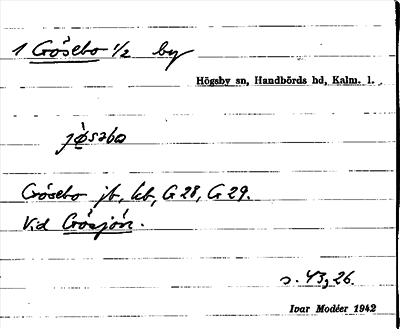 1 Gösebo 1/2 by
Högsby sn, Handbörds hd, Kalm. l.
jò̜sabω
Gösebo jb, kb, G 28, G 29.
Vid Gösjön.
s. 43, 26.
Ivar Modéer 1942